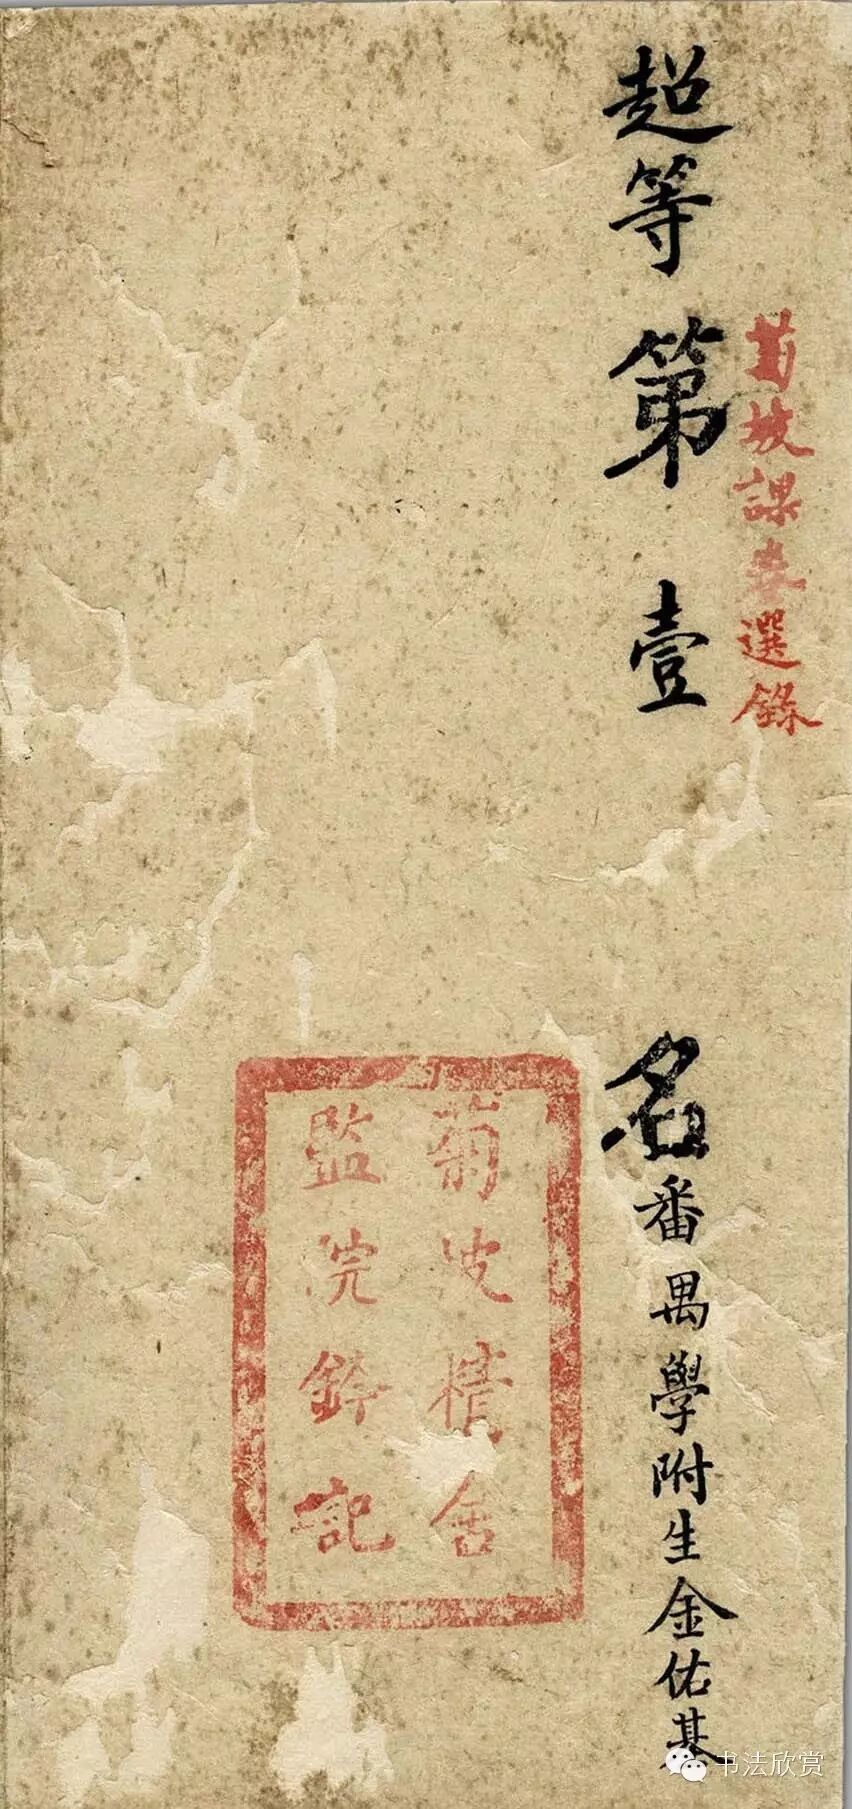 菊坡課卷選錄
超等第壹名番禺學附生金佑基
菊坡精舍
監院鈐記
书法欣赏